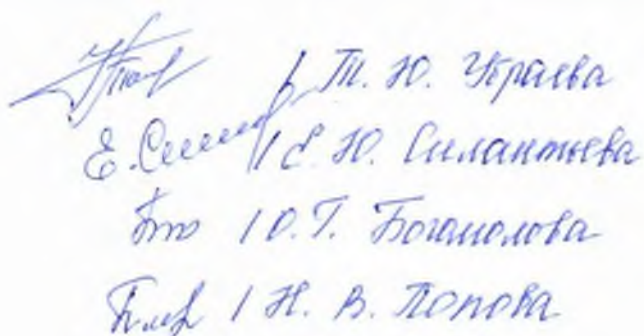 / Т. Ю. Украева
Е. Сил / Е. Ю. Силантьева
/ О. Г. Богомолова
/ Н. В. Попова